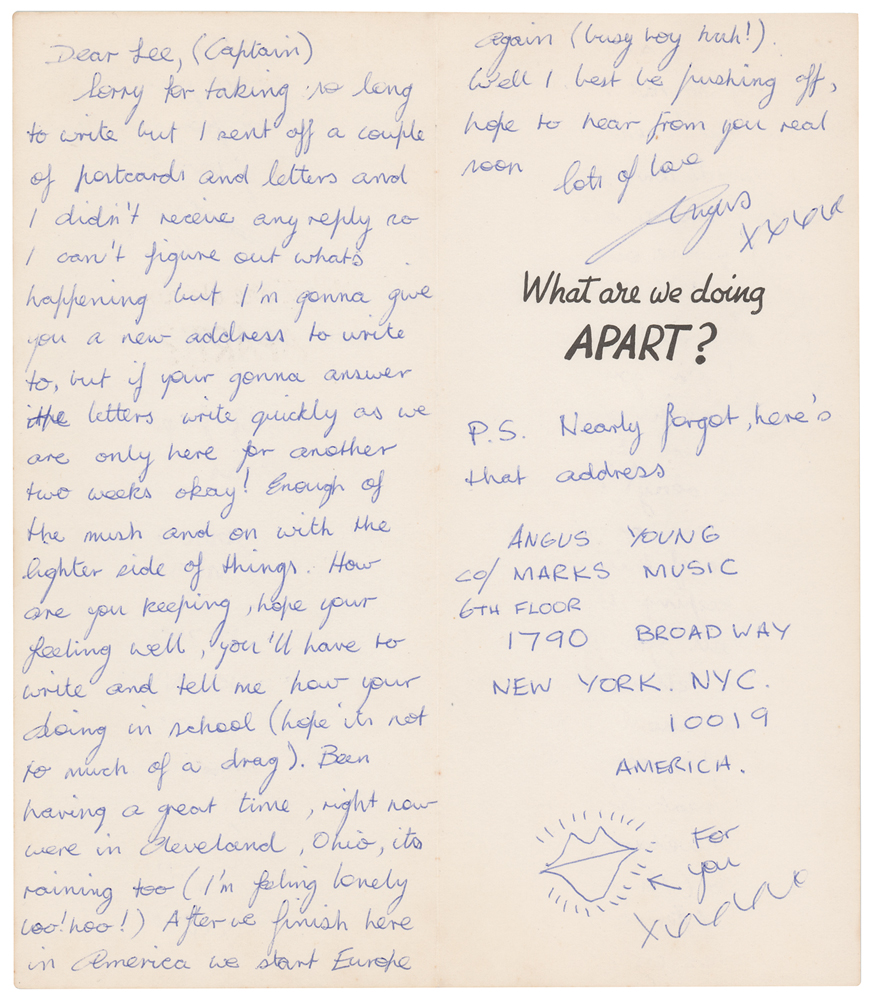 Dear Lee, (Captain)
Sorry for taking so long
to write but I sent off a couple
of postcards and letters and
I didn't receive any reply so
I can't figure out whats
happening but I'm gonna give
you a new address to write
to, but if your gonna answer
the letters write quickly as we
are only here for another
two weeks okay! Enough of
the mush and on with the
lighter side of things. How
are you keeping, hope your
feeling well, you'll have to
write and tell me how your
doing in school (hope its not
to much of a drag). Been
having a great time, right now
were in Cleveland, Ohio, its
raining too (I'm feling lonely
woo!hoo!) After we finish here
in America we start Europe
again (busy boy huh!).
Well I best be pushing off,
hope to hear from you real
soon
lots of love
Angus
xxxxx
What are we doing
APART?
P.S. Nearly forgot, here's
that address
ANGUS YOUNG
co/ MARKS MUSIC
6TH FLOOR
1790 BROADWAY
NEW YORK. NYC.
10019
AMERICA.
For
you
xxxxxx